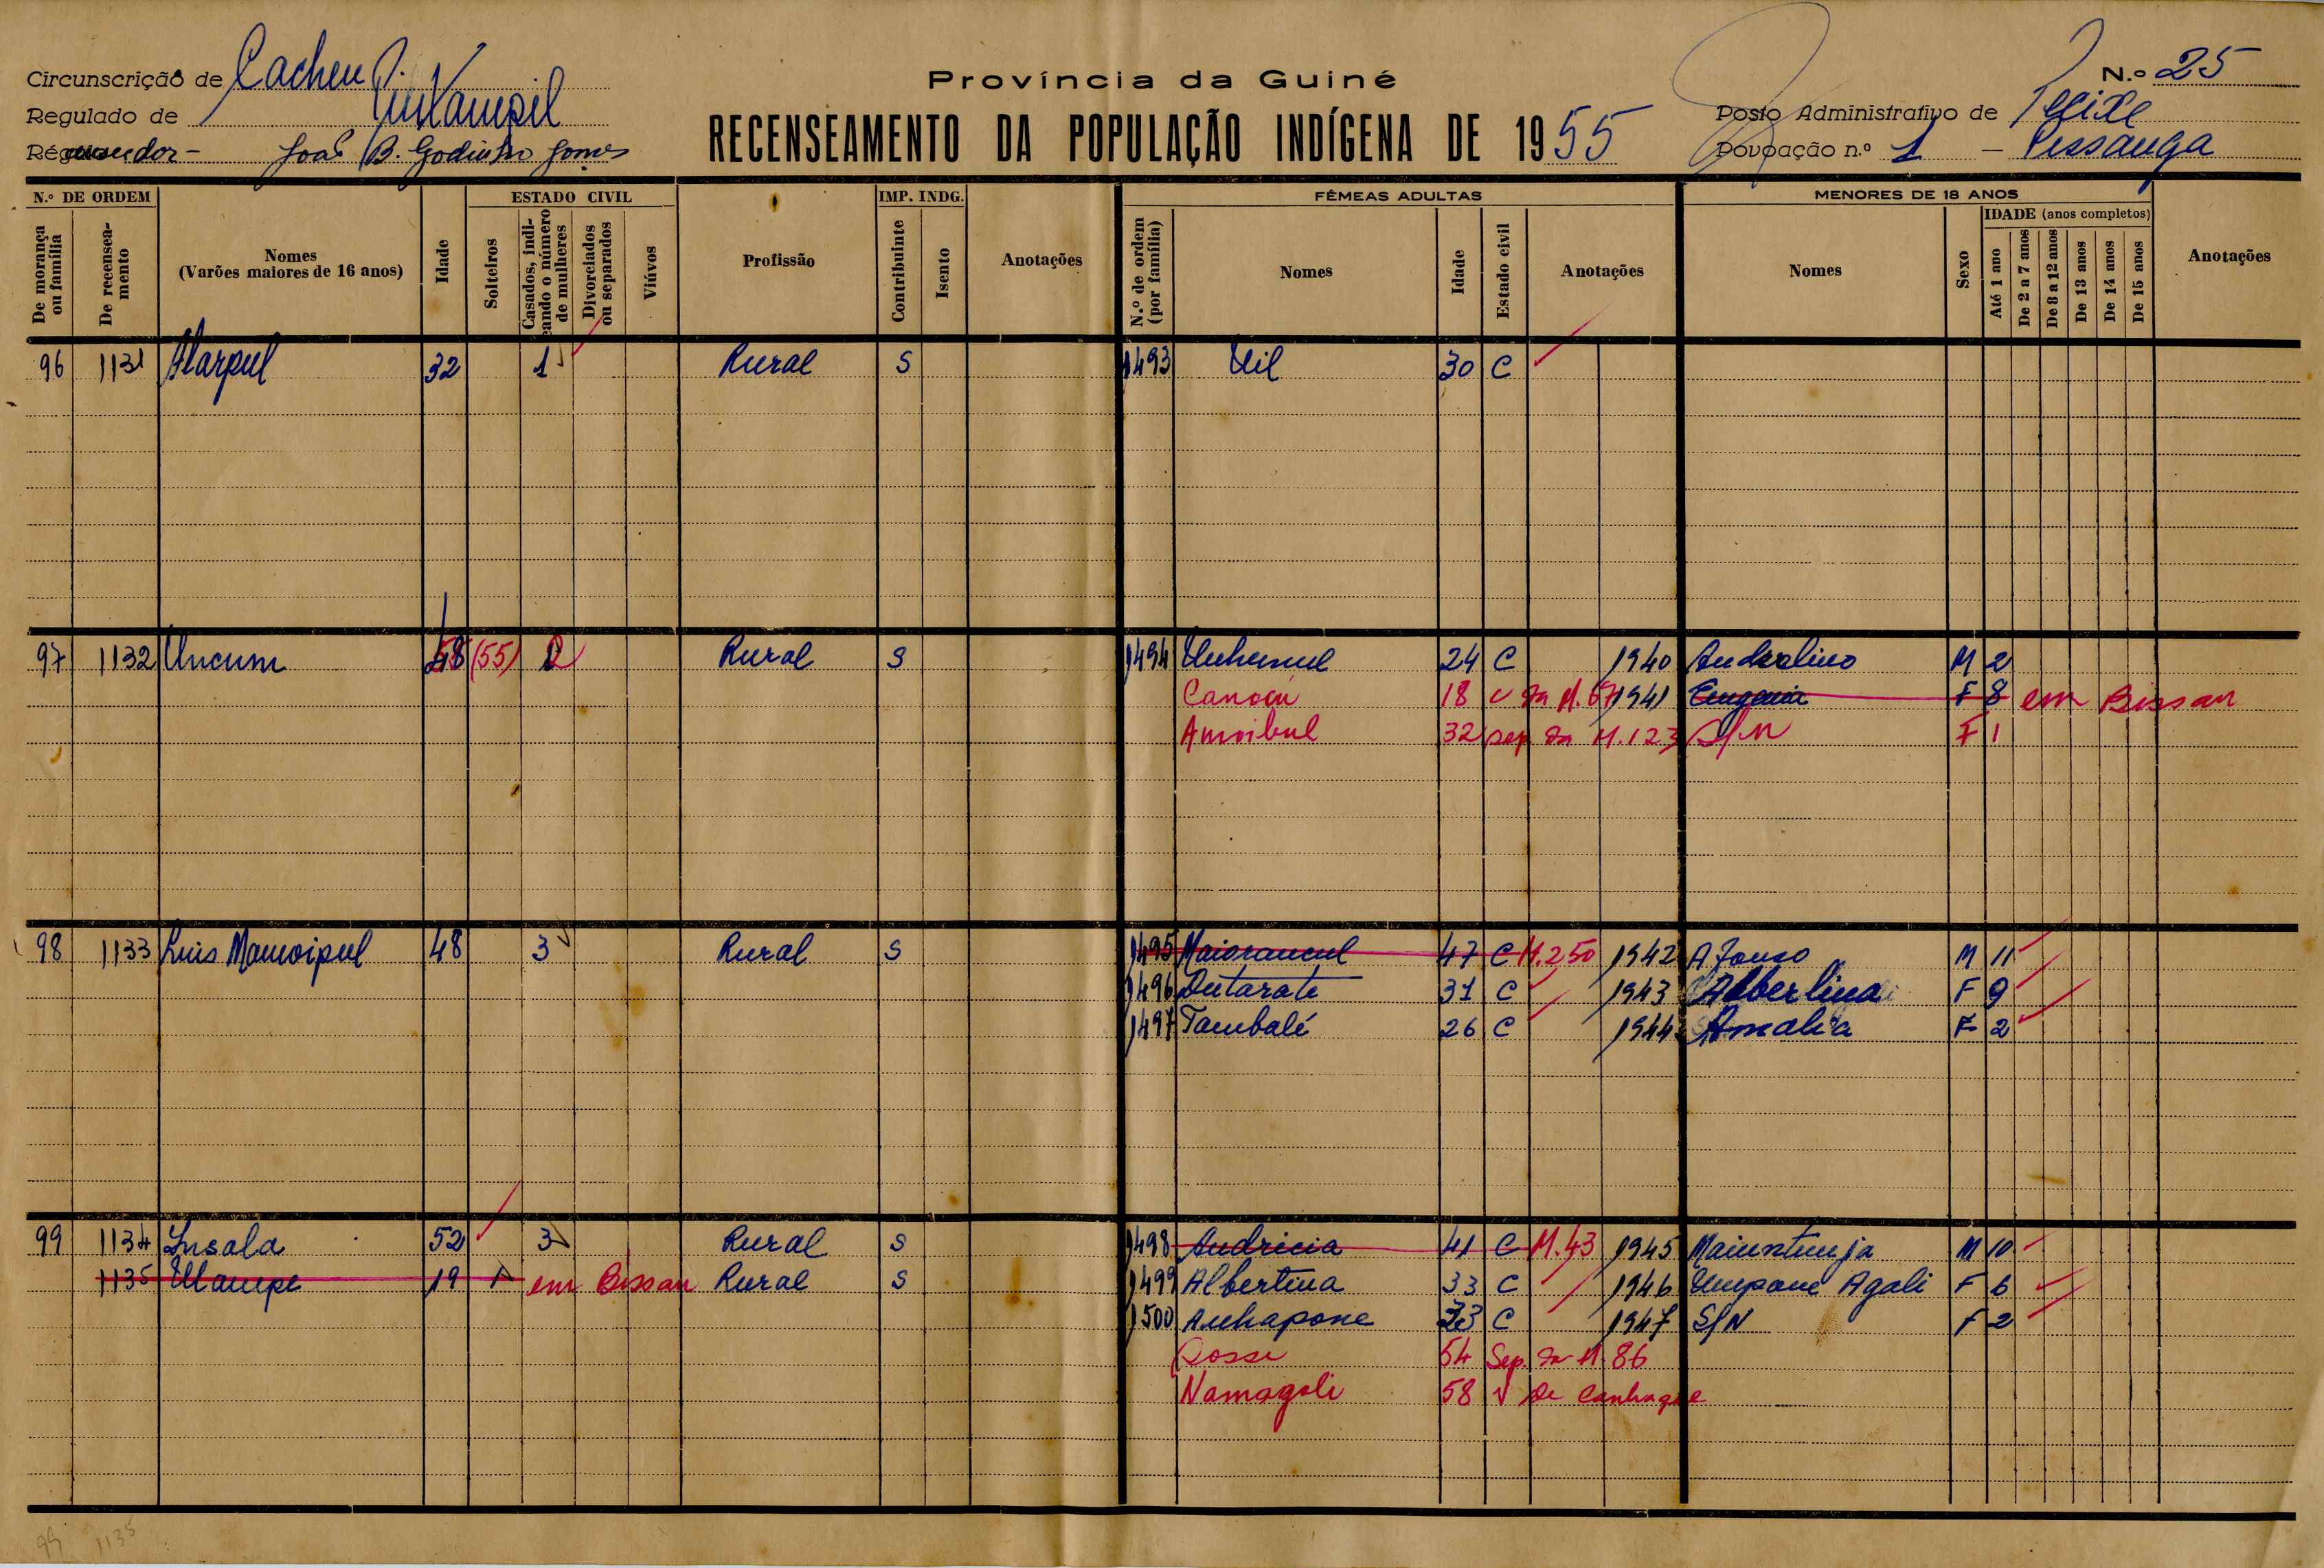 Circunscrição de Cacheu
Província da Guiné
N.º 25
Regulado de
RECENSEAMENTO DA POPULAÇÃO INDÍGENA DE 1955
Posto Administrativo de
João B. Godinho Gomes
Povoação n.º 1 – Pessanga
N.º DE ORDEM
De morança ou família
De recenseamento
Nomes
(Varões maiores de 16 anos)
Idade
ESTADO CIVIL
Solteiros
Casados, indicando o número de mulheres
Divorciados ou separados
Viúvos
Profissão
IMP. INDG.
Contribuinte
Isento
Anotações
FÊMEAS ADULTAS
N.º de ordem (por família)
Nomes
Idade
Estado civil
Anotações
MENORES DE 18 ANOS
Nomes
Sexo
IDADE (anos completos)
Até 1 ano
De 2 a 7 anos
De 8 a 12 anos
De 13 anos
De 14 anos
De 15 anos
Anotações
96 1131 32 1 Rural S 1493 Uil 30 C
97 1132 Uncum 48 (55) Rural S 1494 24 C 1940 M 2
18 da M. 1941 Eugenia F 8 em Bissau
32 Sep. da M. 123 S/N F 1
98 1133 Luis 48 3 Rural S 1495 47 C M. 250 1942 Afonso M 11
1496 31 C 1943 Albertina F 9
1497 Tambalé 26 C 1944 Amalia F 2
99 1134 Insala 52 3 Rural S 1498 41 C M. 43 1945 M 10
1135 19 em Bissau Rural S 1499 Albertina 33 C 1946 Agali F 6
1500 Anhapone C 1947 S/N F 2
54 Sep. da M. 86
Namagoli 58 V De Canhaque
99 1135